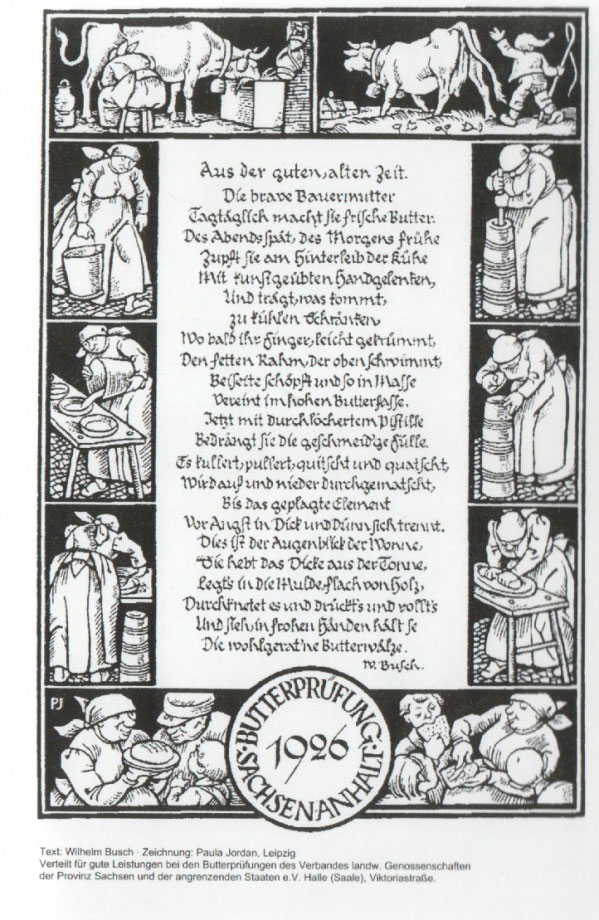 Aus der guten, alten Zeit.
Die brave Bauermutter
Tagtäglich macht sie frische Butter.
Des Abends spät, des Morgens frühe
Zupft sie am Hinterleib der Kühe
Mit kunstgeübten Handgelenken,
Und trägt, was kommt,
zu kühlen Schränken,
Wo bald ihr Finger, leicht gekrümmt,
Den fetten Rahm, der oben schwimmt,
Beiseite schöpft und so in Masse
Vereint im hohen Butterfasse.
Jetzt mit durchlöchertem Pistille
Bedrängt sie die geschmeid'ge Fülle.
Es kullert, pullert, quitscht und quatscht,
Wird auf und nieder durchgematscht,
Bis das geplagte Element
Vor Angst in Dick und Dünn sich trennt.
Dies ist der Augenblick der Wonne,
Sie hebt das Dicke aus der Tonne,
Legt's in die Mulde, flach von Holz,
Durchknetet es und drückt's und rollt's
Und sieh, in frohen Händen hält se
Die wohlgerat'ne Butterwälze.
W. Busch.
PJ
BUTTERPRÜFUNG
1926
SACHSEN-ANHALT
Text: Wilhelm Busch · Zeichnung: Paula Jordan, Leipzig
Verteilt für gute Leistungen bei den Butterprüfungen des Verbandes landw. Genossenschaften
der Provinz Sachsen und der angrenzenden Staaten e.V. Halle (Saale), Viktoriastraße.